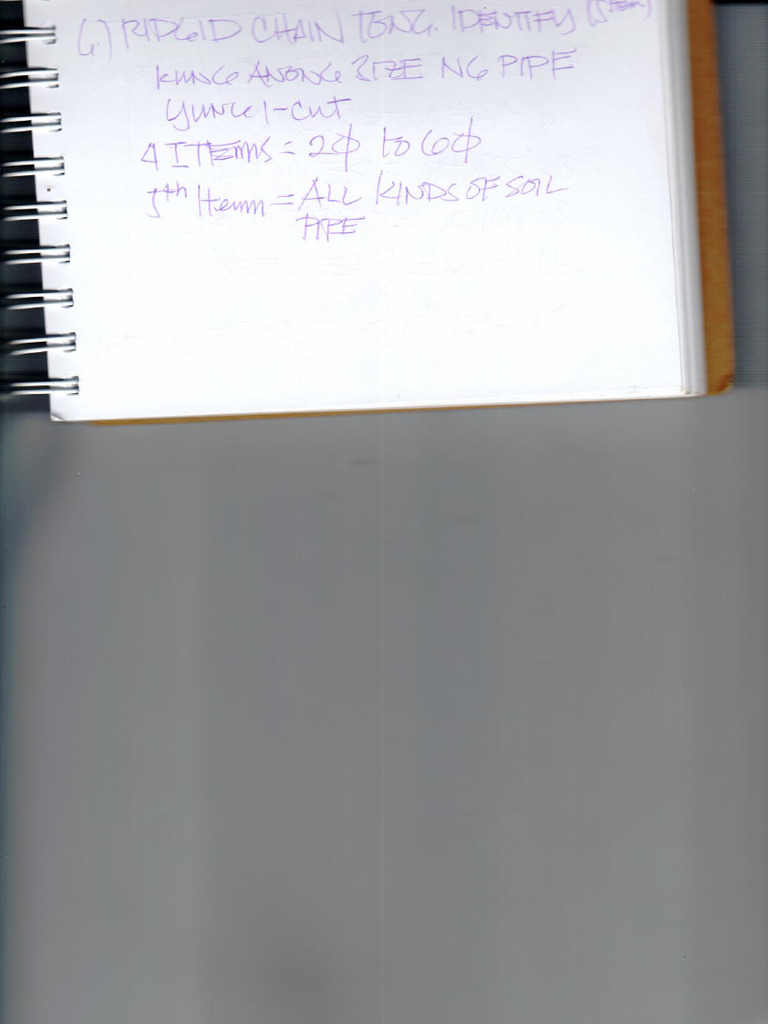 6.) RIDGID CHAIN TONG. IDENTIFY (5 Item)
KUNG ANONG SIZE NG PIPE
YUNG I-CUT
4 ITEMS = 2φ to 6φ
5th Item = ALL KINDS OF SOIL
PIPE